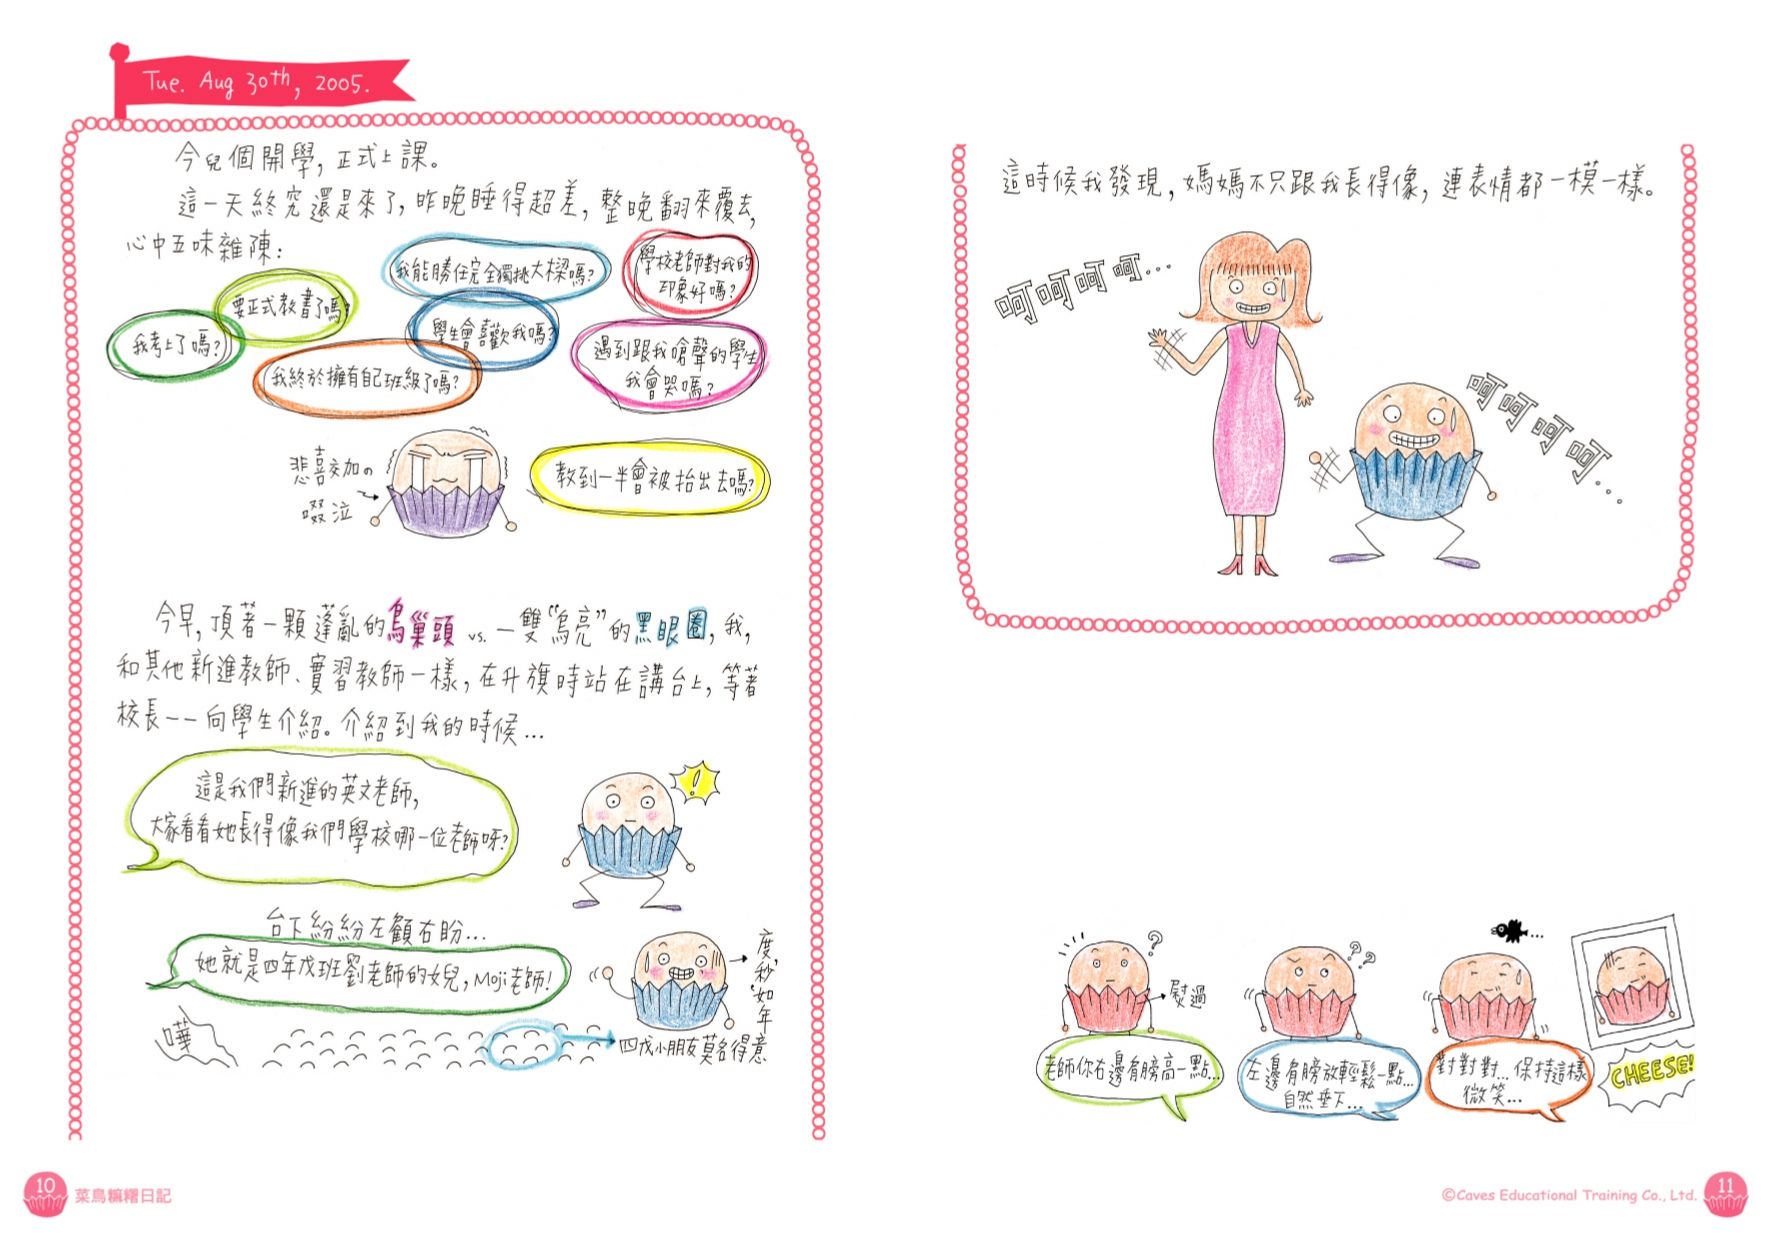 Tue. Aug 30th, 2005.
今兒個開學,正式上課。
這一天終究還是來了,昨晚睡得超差,整晚翻來覆去,
心中五味雜陳:
我能勝任完全獨挑大樑嗎?
學校老師對我的
印象好嗎?
要正式教書了嗎?
學生會喜歡我嗎?
我考上了嗎?
遇到跟我嗆聲的學生
我會哭嗎?
我終於擁有自己班級了嗎?
悲喜交加の
啜泣
教到一半會被抬出去嗎?
今早,頂著一顆蓬亂的鳥巢頭 vs. 一雙“烏亮”的黑眼圈,我,
和其他新進教師、實習教師一樣,在升旗時站在講台上,等著
校長一一向學生介紹。介紹到我的時候...
這是我們新進的英文老師,
大家看看她長得像我們學校哪一位老師呀?
!
台下紛紛左顧右盼...
她就是四年戊班劉老師的女兒,Moji老師!
度秒如年
嘩
四戊小朋友莫名得意
10 菜鳥嫲糬日記
這時候我發現,媽媽不只跟我長得像,連表情都一模一樣。
呵呵呵呵...
呵呵呵呵...
?
熨過
老師你右邊肩膀高一點...
??
左邊肩膀放輕鬆一點...
自然垂下...
...
對對對...保持這樣
微笑...
CHEESE!
©Caves Educational Training Co., Ltd. 11